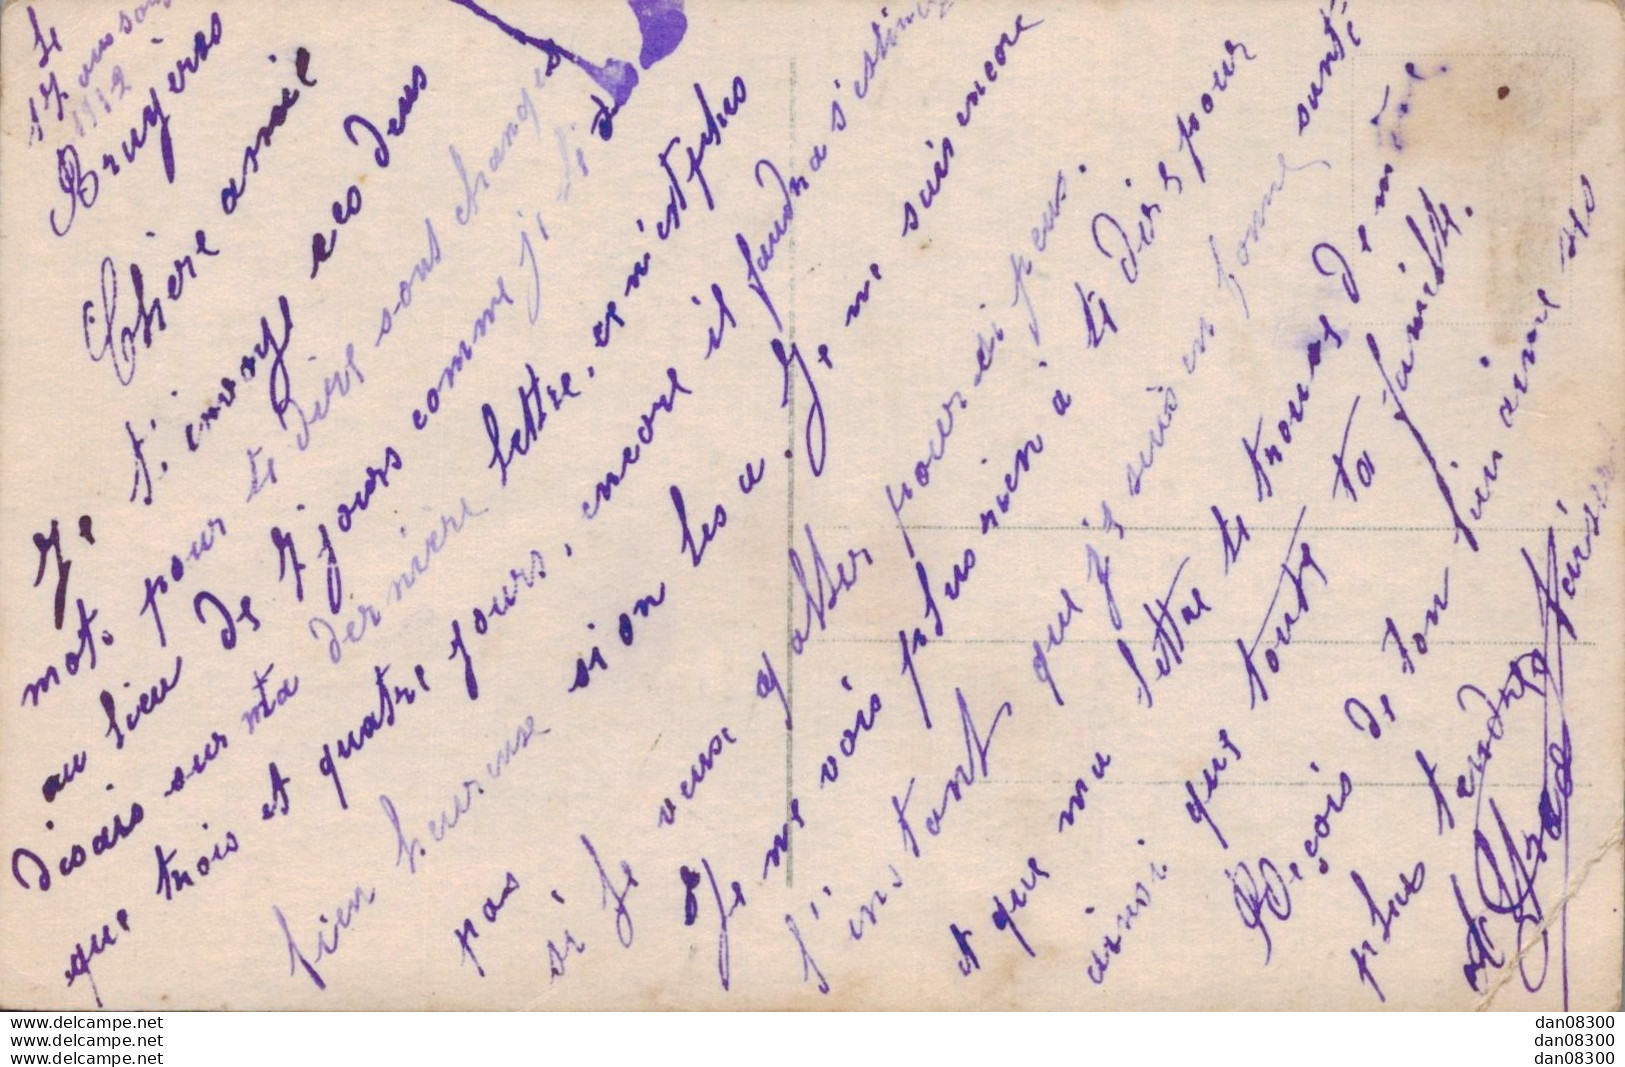 Le
17
1912
Bruyères
Chère amie
Je t'invoye ces deus
mots pour te dire sont changés
au lieu de 7 jours comme je te
disais sur ma dernière lettre, ce n'est plus
que trois et quatre jours, encore il faudra s'estimez
bien heureuse si on les a. Je me suis encore
pas
si je veux y aller pour si peus.
Je ne vois plus rien à te dire pour
l'instant que je suis en bonne santé
et que ma lettre te trouve de même
ainsi que toute ta famille.
Reçois de ton bien aimé
plus tendres baisers
www.delcampe.net
www.delcampe.net
www.delcampe.net
dan08300
dan08300
dan08300